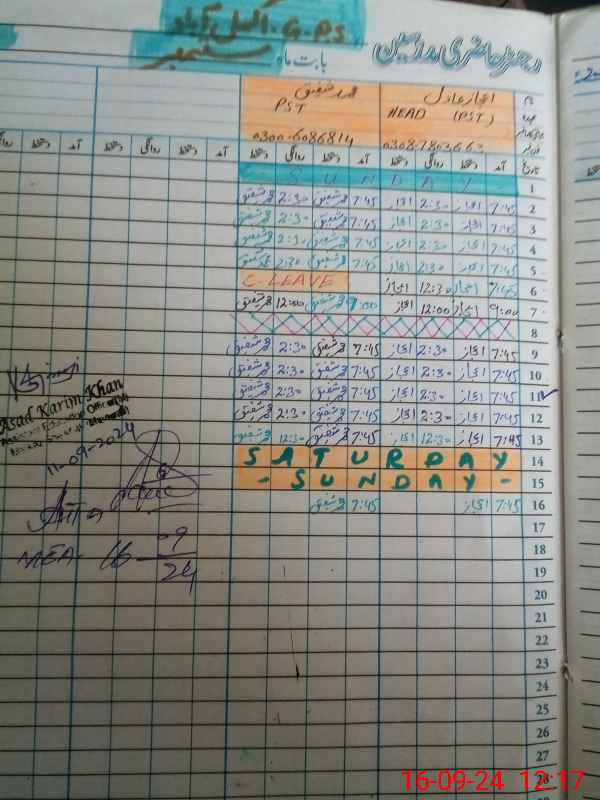 G.P.S. اکمل آباد
بابت ماہ ستمبر
رجسٹر حاضری مدرسین
محمد شفیق
اعجاز عادل
PST
HEAD (PST)
0300-6086814
تاریخ آمد دستخط روانگی دستخط آمد دستخط روانگی دستخط آمد دستخط روانگی دستخط آمد دستخط روانگی
1 SUNDAY
2 7:45 اعجاز 2:30 اعجاز 7:45 محمد شفیق 2:30 محمد شفیق
3 7:45 اعجاز 2:30 اعجاز 7:45 محمد شفیق 2:30 محمد شفیق
4 7:45 اعجاز 2:30 اعجاز 7:45 محمد شفیق 2:30 محمد شفیق
5 7:45 اعجاز 2:30 اعجاز 7:45 محمد شفیق 2:30 محمد شفیق
6 7:45 اعجاز 12:30 اعجاز C.LEAVE
7 9:00 اعجاز 12:00 اعجاز 9:00 محمد شفیق 12:00 محمد شفیق
8
9 7:45 اعجاز 2:30 اعجاز 7:45 محمد شفیق 2:30 محمد شفیق
10 7:45 اعجاز 2:30 اعجاز 7:45 محمد شفیق 2:30 محمد شفیق
11 7:45 اعجاز 2:30 اعجاز 7:45 محمد شفیق 2:30 محمد شفیق
12 7:45 اعجاز 2:30 اعجاز 7:45 محمد شفیق 2:30 محمد شفیق
13 7:45 اعجاز 12:30 اعجاز 7:45 محمد شفیق 12:30 محمد شفیق
14 SATURDAY
15 - SUNDAY -
16 7:45 اعجاز 7:45 محمد شفیق
17
18
19
20
21
22
23
24
25
26
27
28
Asad Karim Khan
11-09-2024
MEA. 16-09-24
16-09-24 12:17